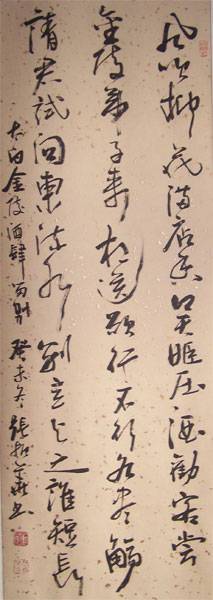 風吹柳花滿店香吳姬壓酒勸客嘗
金陵弟子來相送欲行不行各盡觴
請君試問東流水別意與之誰短長
太白金陵酒肆留別 癸未冬 張 書